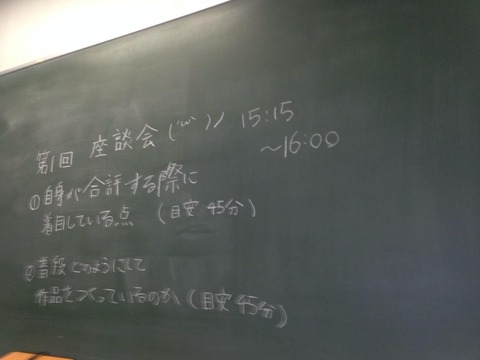 第1回 座談会 (*'ω'*)ノ 15:15
～16:00
①自身が合評する際に
着目している点 (目安 45分)
②普段どのようにして
作品をつくっているのか (目安 45分)